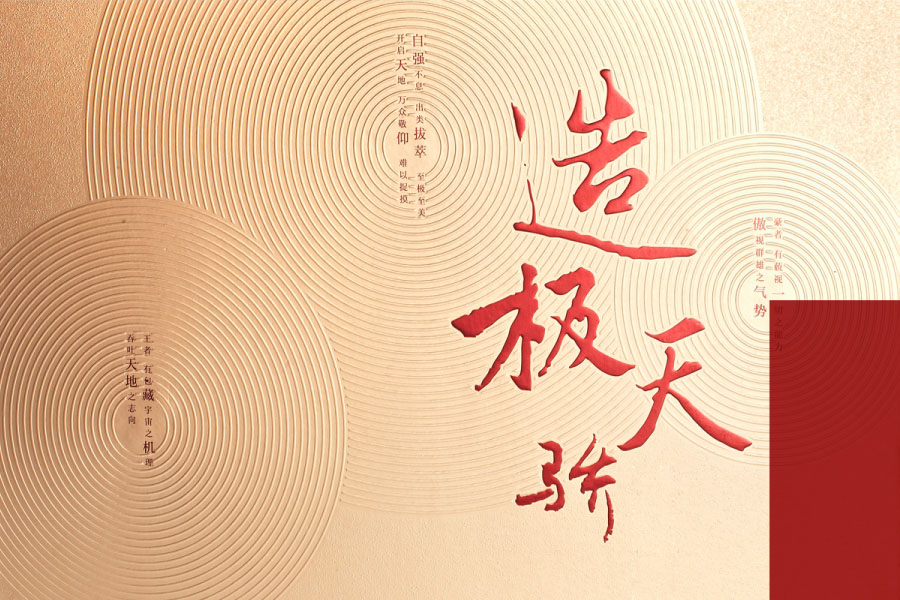 造极
天骄
自强不息 出类拔萃 至极至美
开启天地 万众敬仰 难以捉摸
豪者 有藐视一切之视力
傲视群雄之气势
王者 有包藏宇宙之机理
吞吐天地之志向